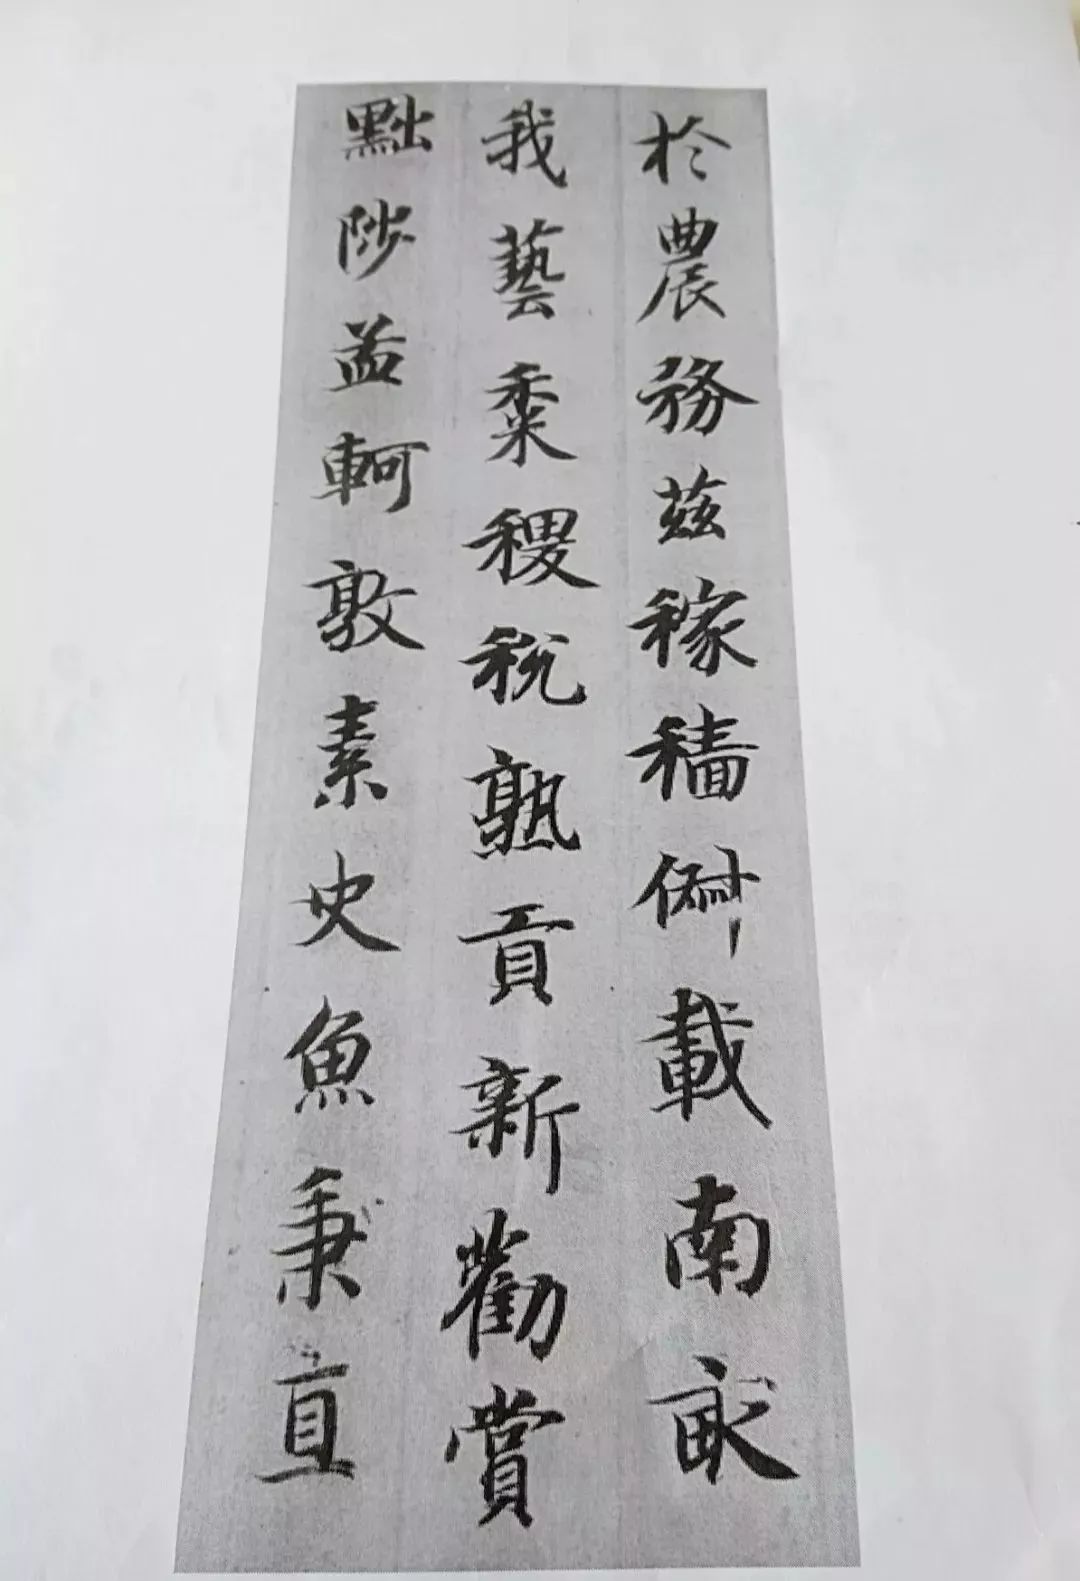 於農務茲稼穡俶載南畝
我藝黍稷稅熟貢新勸賞
黜陟孟軻敦素史魚秉直